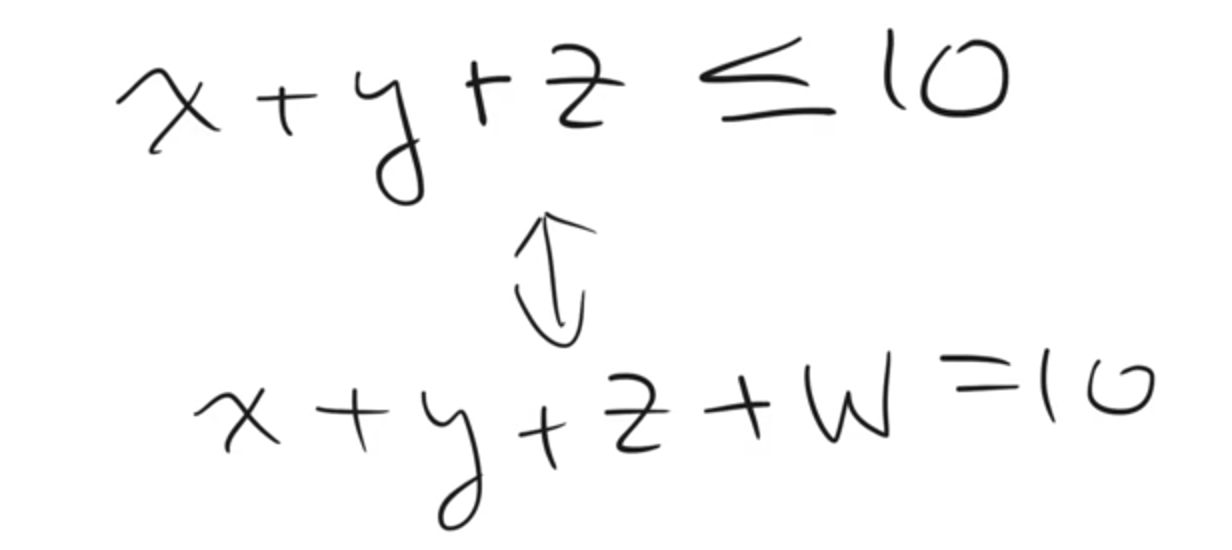 x + y + z ≤ 10
↕
x + y + z + w = 10